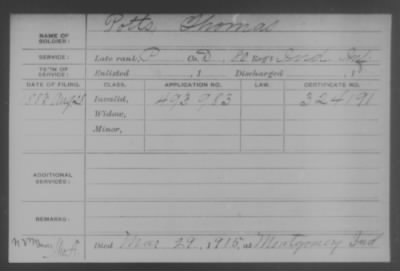 NAME OF SOLDIER: Potts, Thomas
SERVICE: Late rank, P Co. D, 80 Reg't Ind Inf.
TERM OF SERVICE: Enlisted , 1 Discharged , 18
DATE OF FILING. CLASS. APPLICATION NO. LAW. CERTIFICATE NO.
Aug 28 Invalid, 493 983 324191
Widow,
Minor,
ADDITIONAL SERVICES:
REMARKS:
Died Mar 29, 1915, at Montgomery Ind